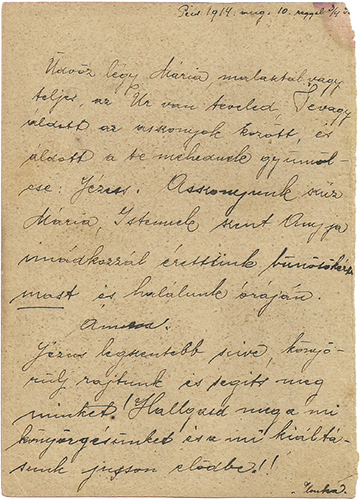 Pécs, 1914. aug. 10. reggel 3/4
Üdvöz légy Mária malaszttal vagy
teljes, az Úr van teveled, Te vagy
áldott az asszonyok között, és
áldott a te méhednek gyümöl-
cse: Jézus. Asszonyunk szűz
Mária, Istennek szent Anyja
imádkozzál érettünk bűnösökért
most és halálunk óráján.
Amen.
Jézus legszentebb szive, könyö-
rülj rajtunk és segits meg
minket! Hallgasd meg a mi
könyörgésünket és a mi kiáltá-
sunk jusson elődbe!!
Ilonka